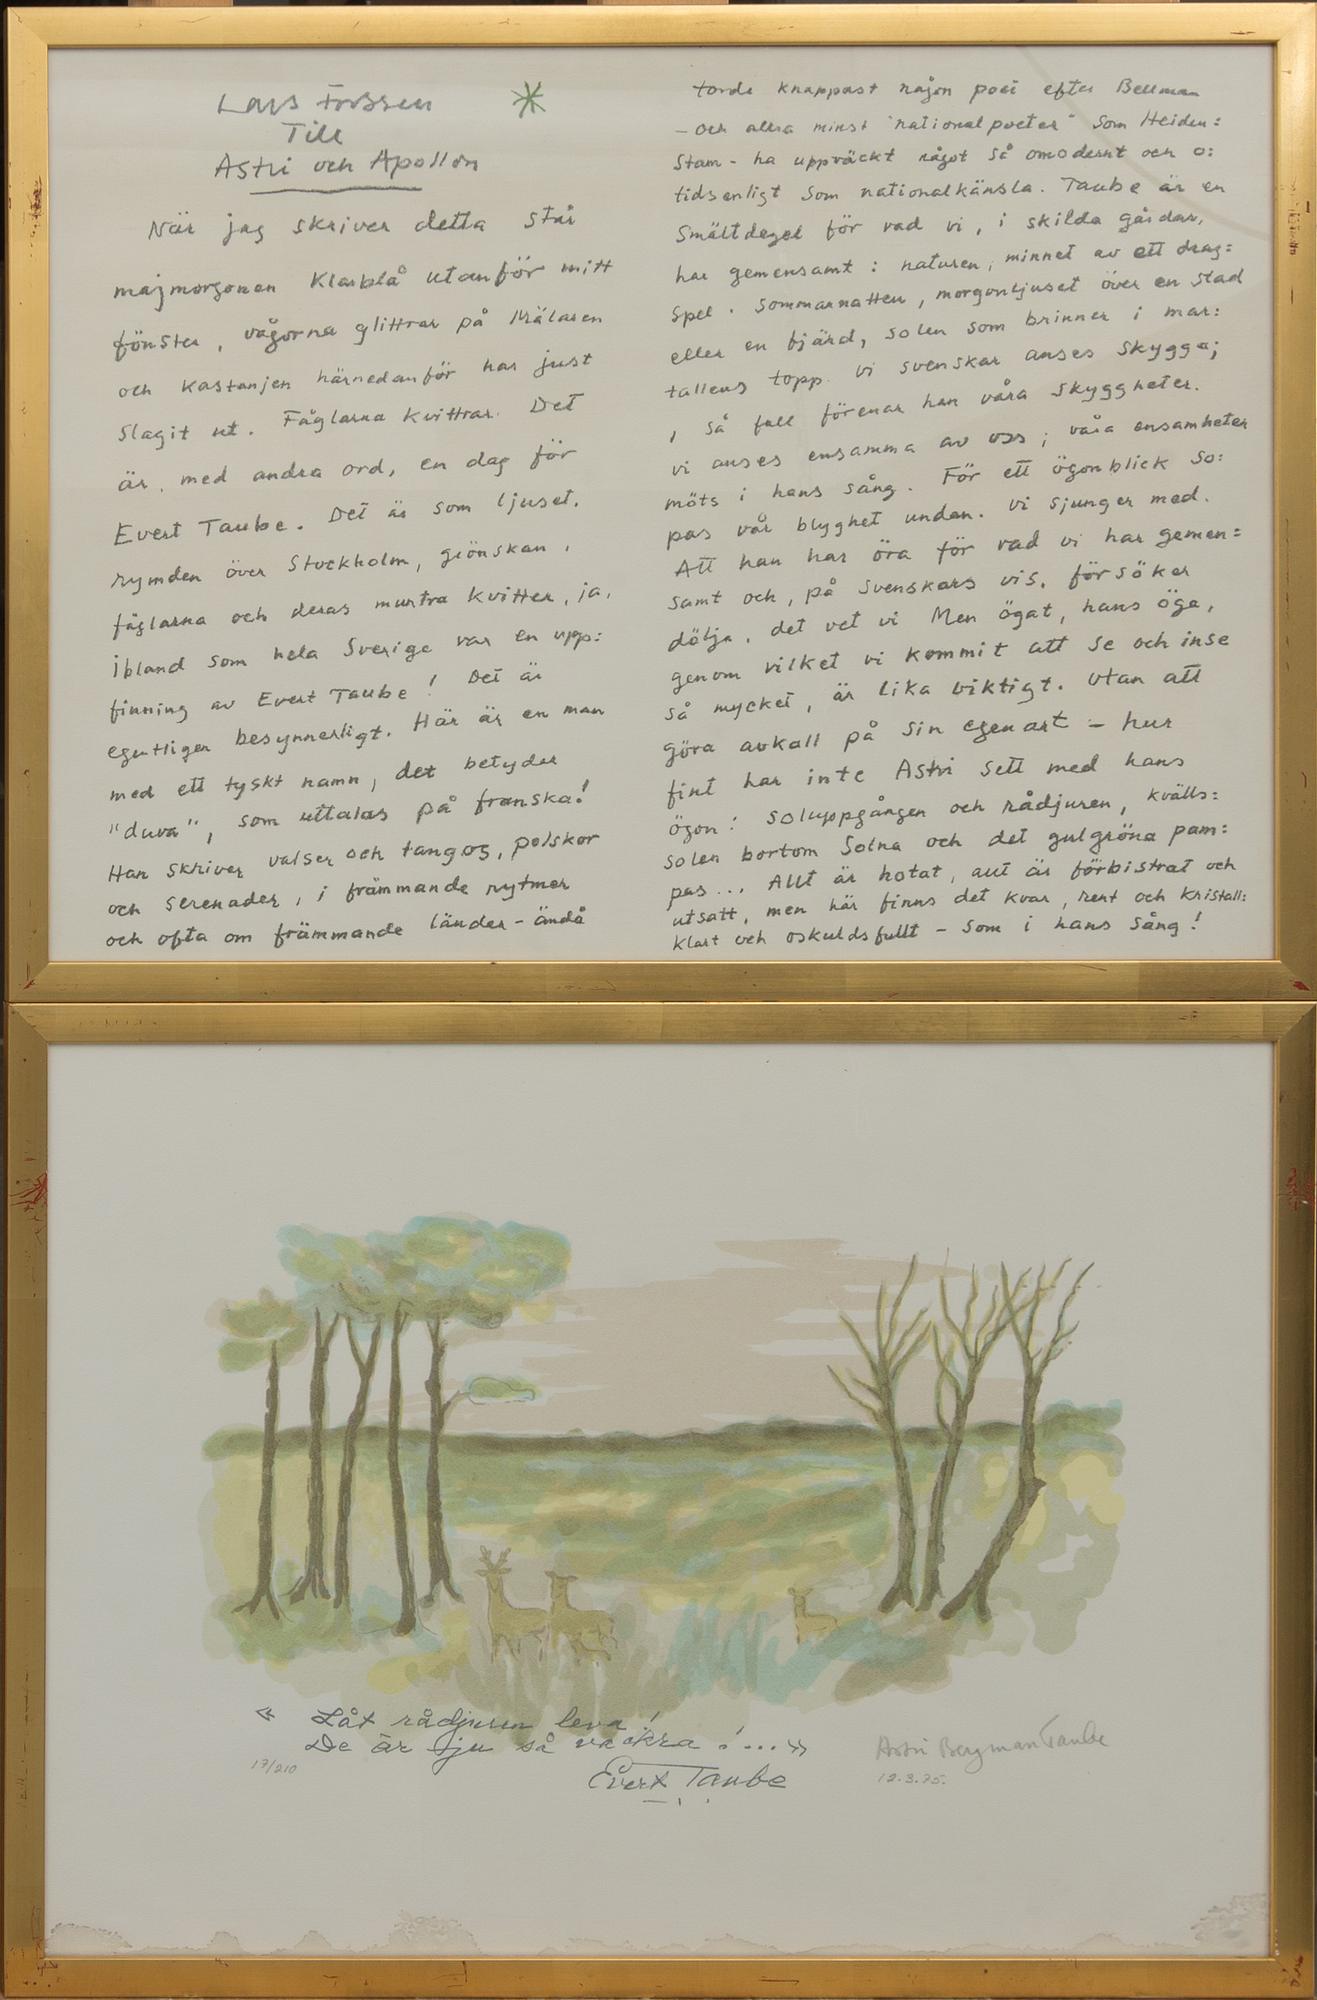 Lars Forssell
Till
Astri och Apollon
När jag skriver detta står
majmorgonen klarblå utanför mitt
fönster, vågorna glittrar på Mälaren
och kastanjen härnedanför har just
slagit ut. Fåglarna kvittrar. Det
är, med andra ord, en dag för
Evert Taube. Det är som ljuset,
rymden över Stockholm, grönskan,
fåglarna och deras muntra kvitter, ja,
ibland som hela Sverige var en upp:
finning av Evert Taube! Det är
egentligen besynnerligt. Här är en man
med ett tyskt namn, det betyder
"duva", som uttalas på franska!
Han skriver valser och tangos, polskor
och serenader, i främmande rytmer
och ofta om främmande länder - ändå
torde knappast någon poet efter Bellman
- och allra minst "nationalpoeter" som Heiden:
stam - ha uppväckt något så omodernt och o:
tidsenligt som nationalkänsla. Taube är en
smältdegel för vad vi, i skilda gårdar,
har gemensamt: naturen, minnet av ett drag:
spel. Sommarnatten, morgonljuset över en stad
eller en fjärd, solen som brinner i mar:
tallens topp. Vi svenskar anses skygga;
i så fall förenar han våra skyggheter.
Vi anses ensamma av oss; våra ensamheter
möts i hans sång. För ett ögonblick so:
pas vår blyghet undan. Vi sjunger med.
Att han har öra för vad vi har gemen:
samt och, på svenskars vis, försöker
dölja, det vet vi. Men ögat, hans öga,
genom vilket vi kommit att se och inse
så mycket, är lika viktigt. Utan att
göra avkall på sin egenart – hur
fint har inte Astri sett med hans
ögon: soluppgången och rådjuren, kvälls:
solen bortom Solna och det gulgröna pam:
pas... Allt är hotat, allt är förbistrat och
utsatt, men här finns det kvar, rent och kristall:
klart och oskuldsfullt - som i hans sång!
« Låt rådjuren leva!
De är ju så vackra!...»
Evert Taube
17/210
Astri Bergman Taube
12.3.75.